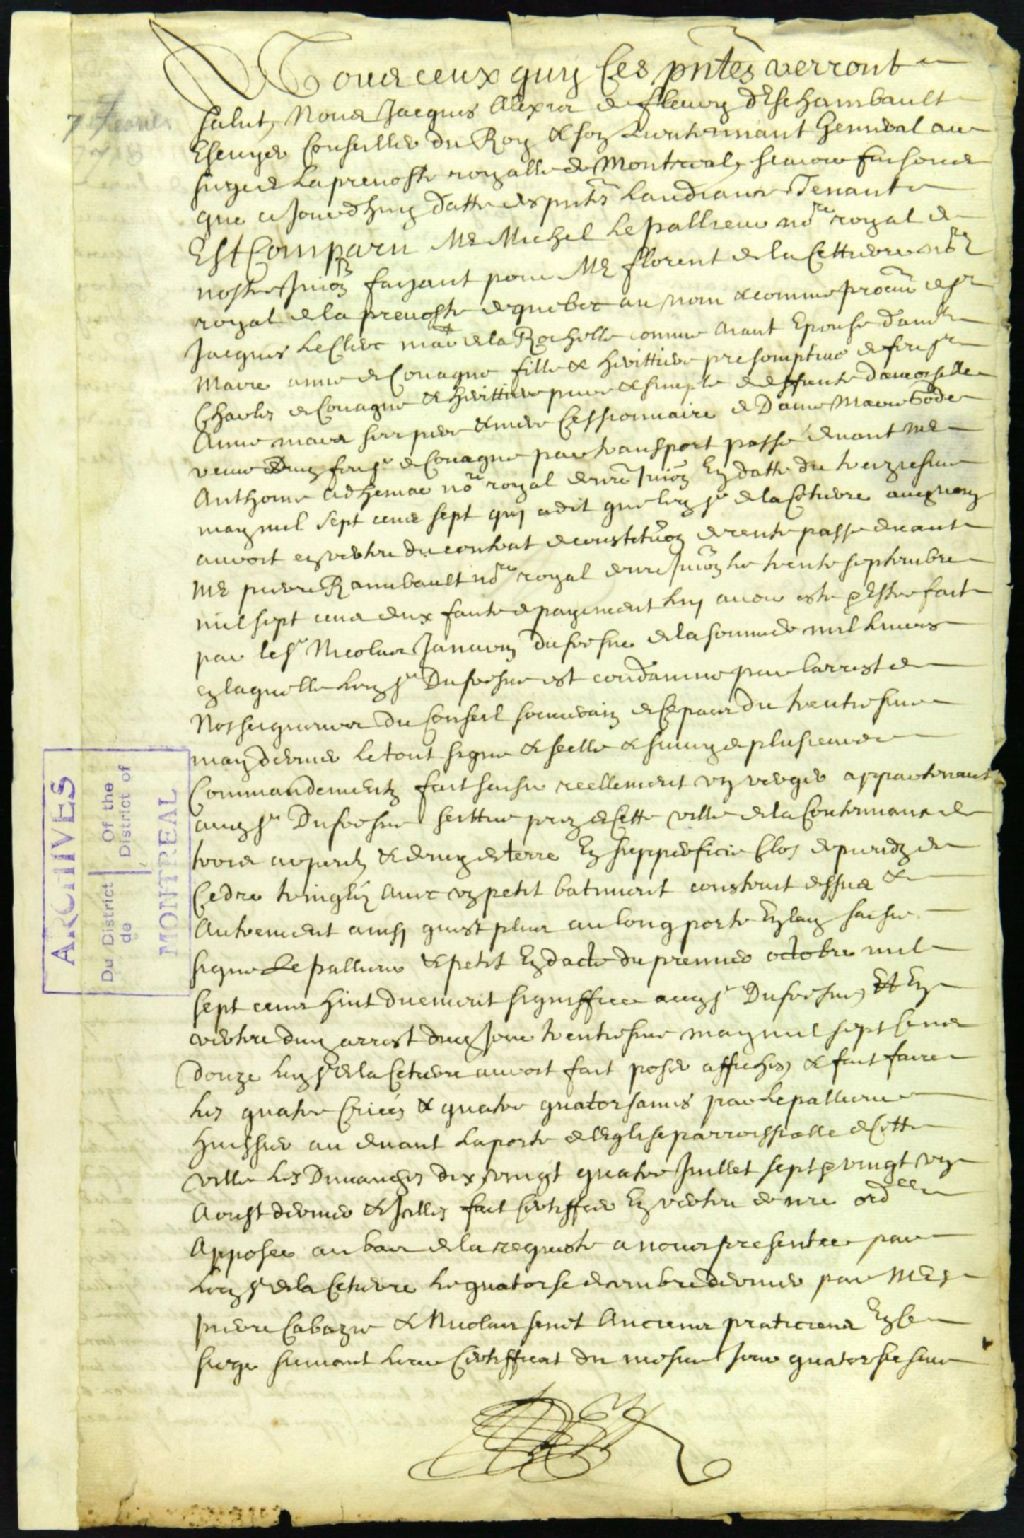 A Tous ceux quy Ces pntes verront
salut, Nous Jacques Alexis de fleury dEschambault
Escuyer Conseiller du Roy & son Lieutennant General au
siege de La prevosté royalle de Montreal, scavoir faisons
que ce Jourdhuy datte des pntes Laudiance Tenant
Est Comparu Me Michel Lepallieur nore royal de
nostre Jurion faisant pour Me florent de la Cettiere nore
royal de la prevosté de quebec au nom & comme procur de sr
Jacques LeClerc mard de la Rochelle comme aiant Epousé damlle
Marie anne de Couagne fille & herittiere presomptive de feu sr
Charles de Couagne & herittiere pure & simple de deffunte damoiselle
Anne mars ses pere & mere Cessionnaire de Dame Marie Gode
veuve dud feu sr de Couagne par transport passé devant Me
Anthoine adhemar nore royal de nre Jurion En datte du treiziesme
may mil sept cens sept quy a dit que led sr de la Cetiere aud nom
auroit en vertu du contrat de constitution de rente passé devant
Me pierre Raimbault nore royal de nre Jurion le trente septembre
mil sept cens deux faute de payement luy avoir esté & Estre fait
par le sr Nicolas Janvrin dufresne de la somme de mil livres
en laquelle led sr Dufresne est condamné par larrest de
Nosseigneurs du Conseil souverain de Ce pais du trentiesme
may dernier le tout signé & scellé & suivy de plusieurs
Commandements fait saisir reellement un verger appartenant
aud sr Dufresne scittué prez de Cette ville de la Contenance de
trois arpents & demy de terre En supperficie Clos de pieux de
Cedre avec un petit batiment construit dessus &
Autrement ainsy quest plus au long porté En lad saisie
signé Lepallieur & petit En datte du premier octobre mil
sept cens huit duement signiffiée aud sr Dufresne, Et En
vertu dud arrest dud Jour trentiesme may mil sept Cens
douze led sr de la Cetiere auroit fait poser affiches & fait faire
les quatre Criées & quatre quatorsaines par Lepallieur
huissier au devant La porte de lEglise parroissialle de Cette
ville les Dimanches dix, vingt quatre Juillet sept & vingt un
Aoust dernier & Jcelles fait Certiffier En vertu de nre ordce
Apposée au bas de la requeste a nous presentée par
led sr de la Cetiere le quatorse dernier par Mes
pierre Cabazie & Nicolas senet Anciens praticiens En Ce
siege suivant leur Certifficat du mesme Jour quatorsiesme
ARCHIVES
Du District de
Of the District of
MONTREAL